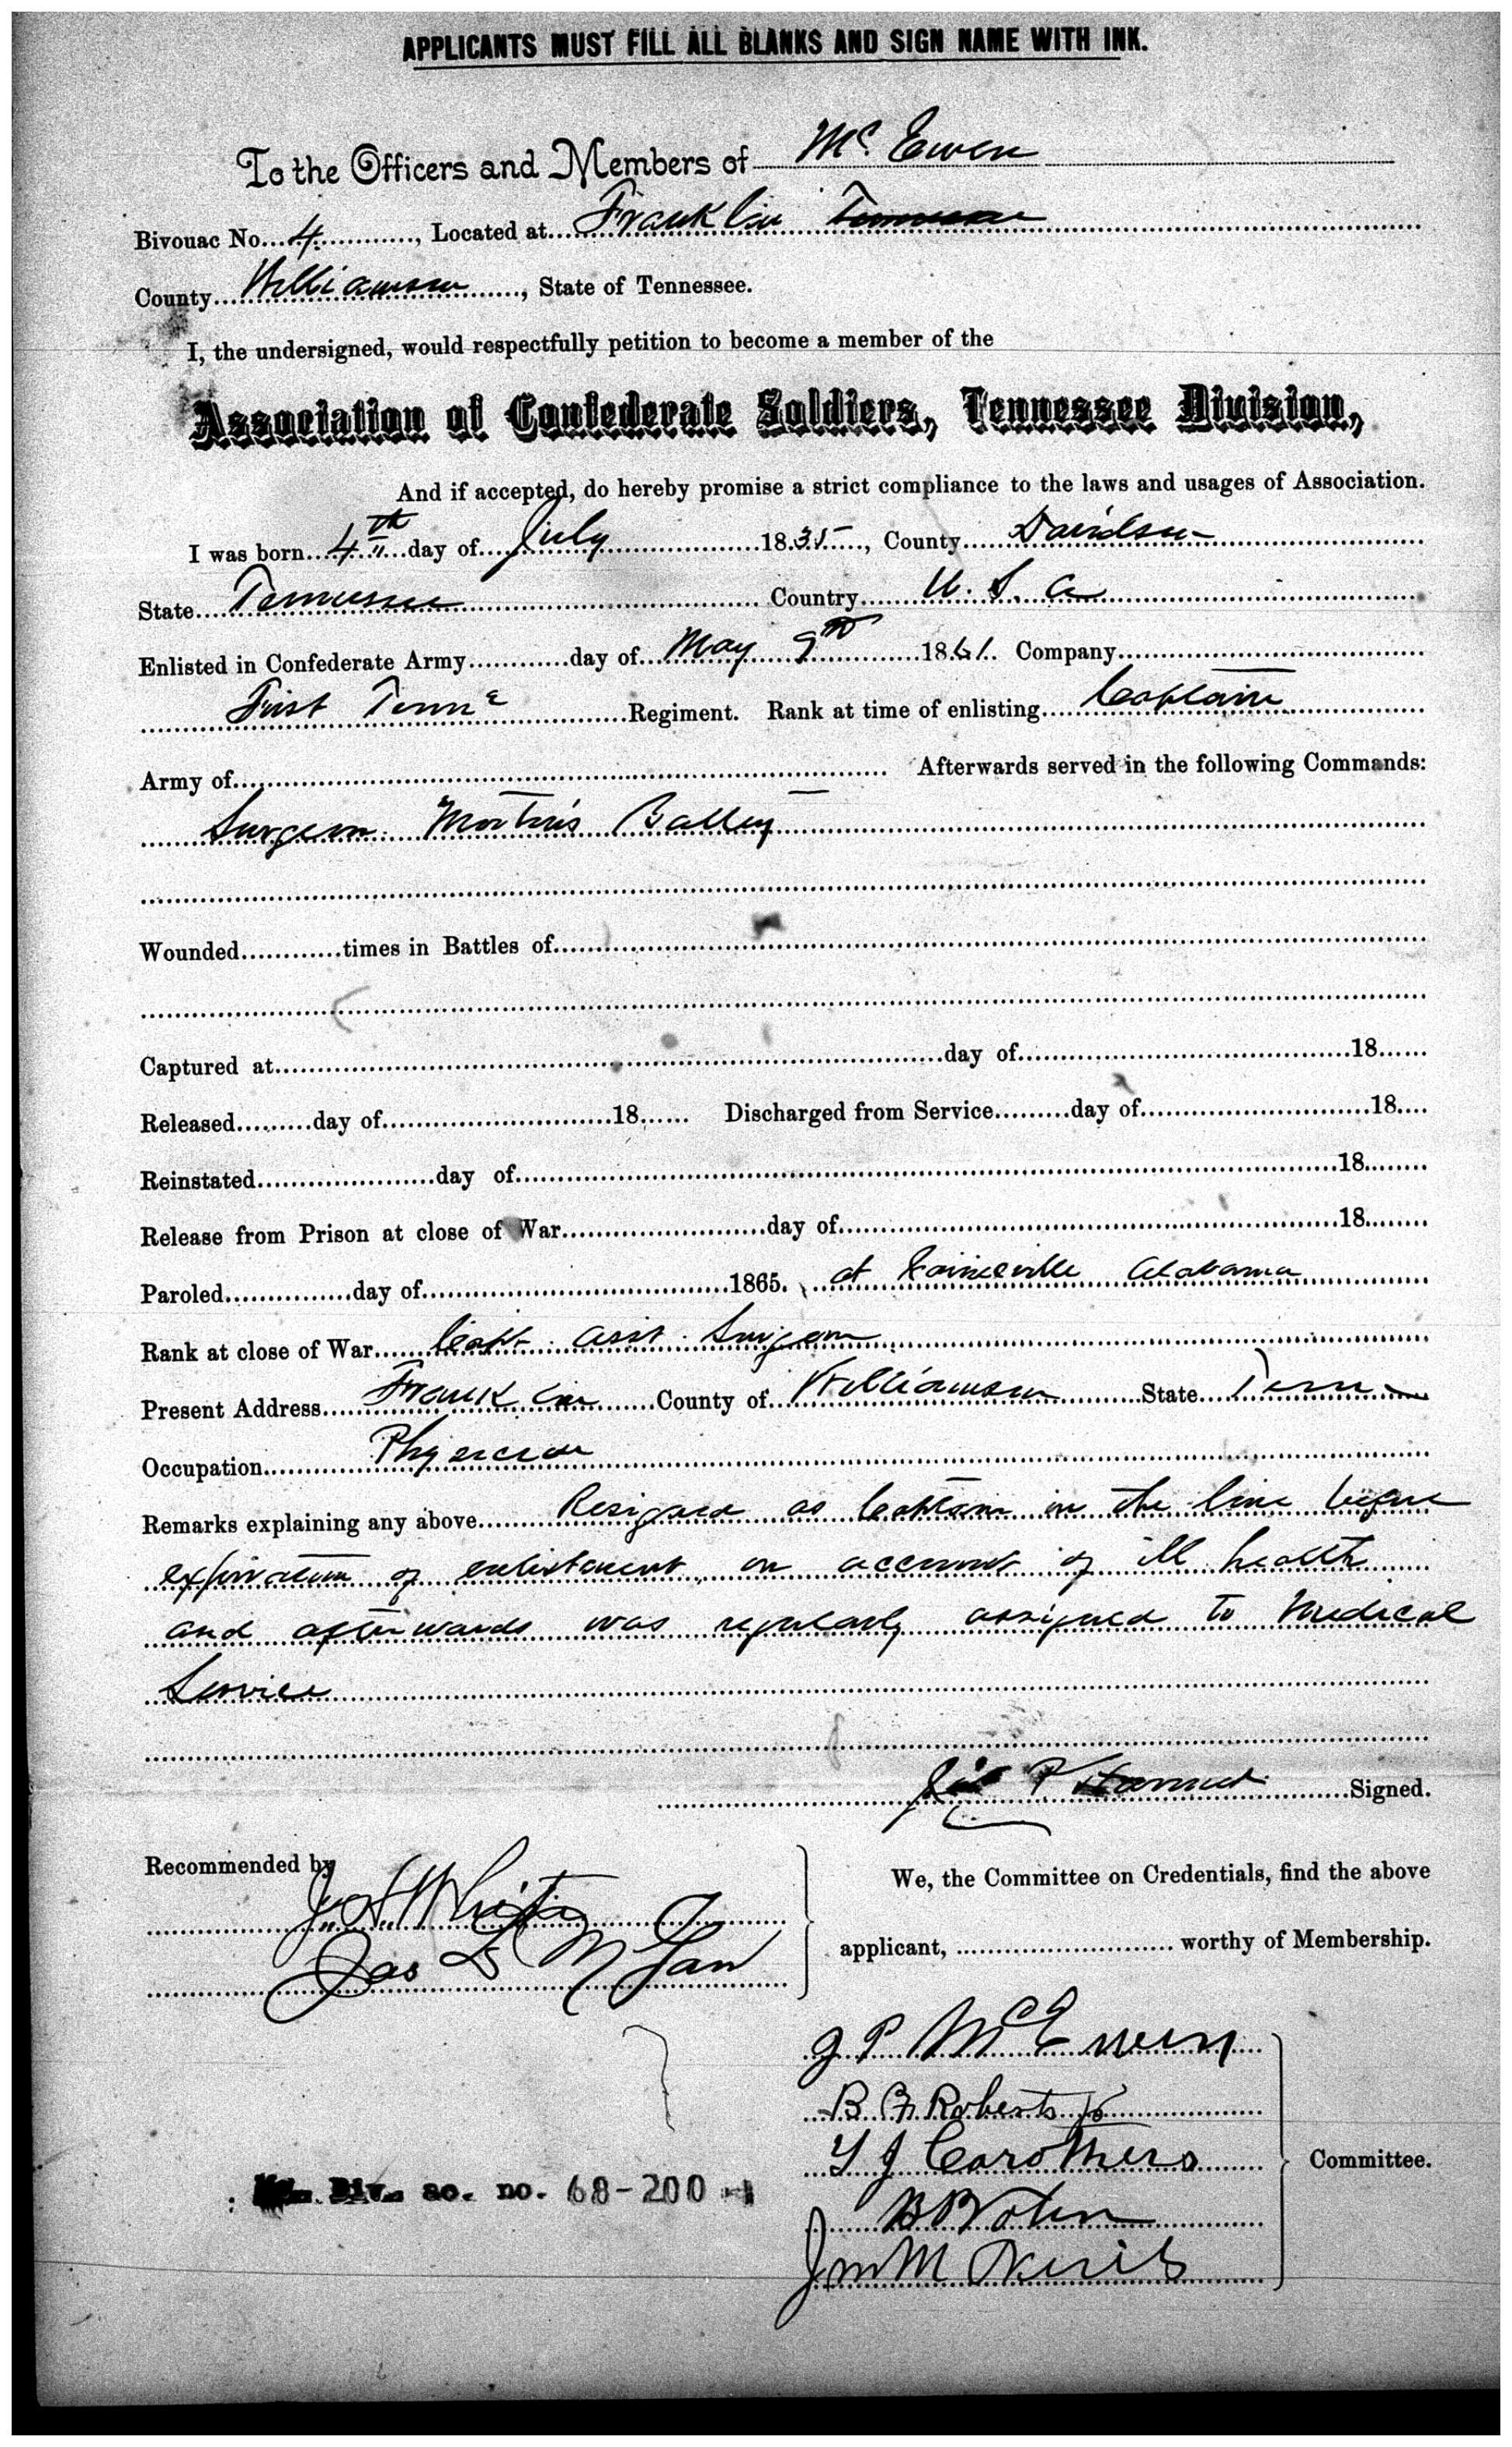 APPLICANTS MUST FILL ALL BLANKS AND SIGN NAME WITH INK.
To the Officers and Members of Mc Ewen
Bivouac No. 4, Located at Franklin Tennessee
County Williamson, State of Tennessee.
I, the undersigned, would respectfully petition to become a member of the
Association of Confederate Soldiers, Tennessee Division,
And if accepted, do hereby promise a strict compliance to the laws and usages of Association.
I was born 4th day of July 1835, County Davidson
State Tennessee Country U. S. a
Enlisted in Confederate Army day of May 9th 1861. Company
First Tenne Regiment. Rank at time of enlisting Captain
Army of Afterwards served in the following Commands:
Surgeon Morton's Battery
Wounded times in Battles of
Captured at day of 18
Released day of 18 Discharged from Service day of 18
Reinstated day of 18
Release from Prison at close of War day of 18
Paroled day of 1865. at Gainesville Alabama
Rank at close of War Capt. asst. Surgeon
Present Address Franklin County of Williamson State Tenn
Occupation Physician
Remarks explaining any above Resigned as Captain in the line before
expiration of enlistment, on account of ill health
and afterwards was regularly assigned to Medical
Service
Signed.
Recommended by
We, the Committee on Credentials, find the above
applicant, worthy of Membership.
Jas
J P McEwen
B F Roberts
Committee.
Carothers
Div. ac. no. 68-200